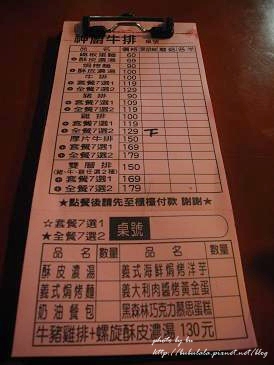 神厨牛排
品名 價格
鐵板蛋麵 60
●酥皮濃湯 69
焗烤麵 90
●酥皮濃湯 99
牛排 100
●套餐7選1 119
●全餐7選2 129
豬排 90
●套餐7選1 109
●全餐7選2 119
雞排 100
●套餐7選1 119
●全餐7選2 129
厚片牛排 150
●套餐7選1 169
●全餐7選2 179
雙層排 150
(豬.牛.雞任選2種)
●套餐7選1 169
●全餐7選2 179
★點餐後請先至櫃檯付款 謝謝★
☆套餐7選1
★全餐7選2
桌號
品名 數量 品名 數量
酥皮濃湯 義式海鮮焗烤洋芋
義式焗烤麵 義大利肉醬烤黃金蛋
奶油餐包 黑森林巧克力慕思蛋糕
牛豬雞排+螺旋酥皮濃湯 130元
photo by bu
http://bubulala.pixnet.net/blog